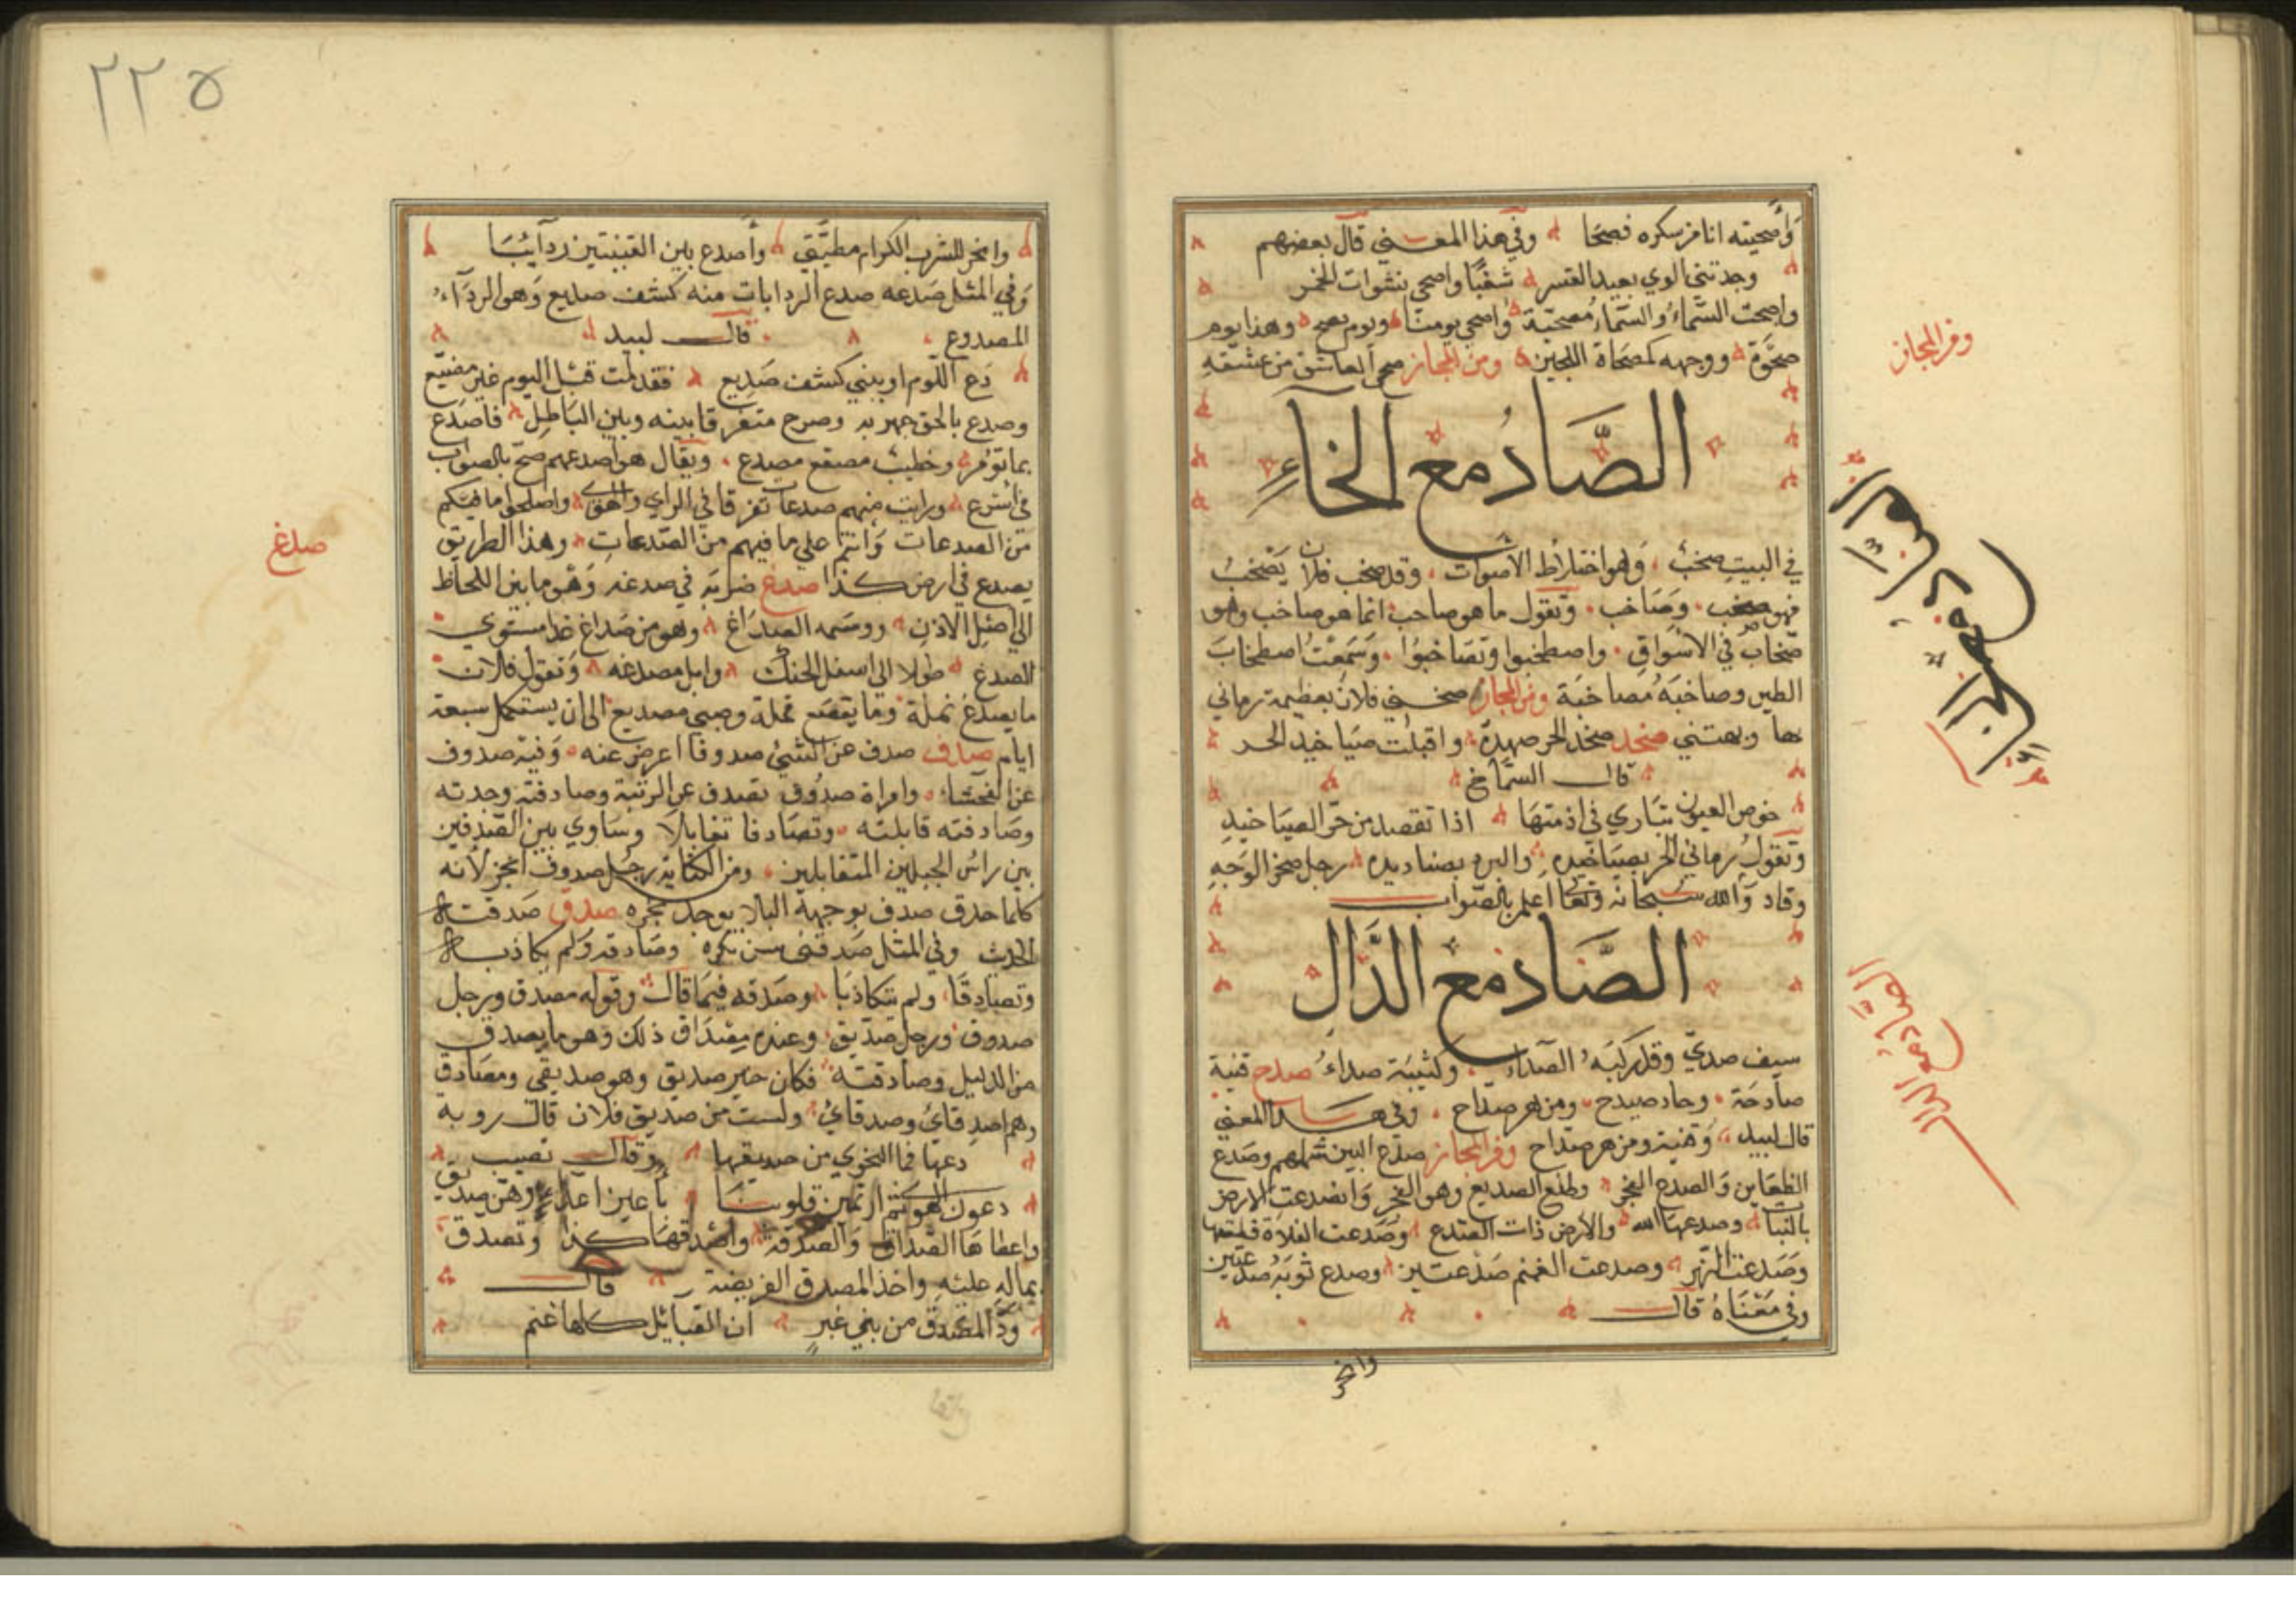 وأصحيته انا من سكره فصحا وفي هذا المعنى قال بعضهم
وجدتني الوي بعيد القسر شغبًا واصحي نشوات الخمر
واصحت السَّماءُ والسّماءُ مُصحيّة وأصحى يومنا ويوم صحو وهذا يوم
صَحْوَة ووجهه كمصحاة اللجين ومن المجاز صحى العاشق من عشقه
الصَّادُ مع الخَاءِ
في البيت صَخَبٌ وهو اختلاط الاصوات وقد صخب فلان يَصْخَبُ
فهو صخب وصَاخب وتقول ما هو صاحب انما هو صاخب وهو
صَخّاب في الاسْوَاقِ واصطخبوا وتصَاخبُوا وسَمعْتُ اصطخابَ
الطير وصاخبَهُ مُصاخبَة ومن المجاز صخـ في فلان بعظيمة رماني
بها وبهتني صخد صخد الحر صهده واقبلت صَيَاخيد الحر
قال الشمَّاخ
خوص العيون تبَاري في ازمتهَا اذا تقصد من حَرّ الصيَاخيدِ
وتقولُ رماني الحر بصيَاخيده والبرد بصناديده رجل صخر الوَجهِ
وقاد وَالله سُبحانه وتعالى اعلم بالصّوابِ
الصَّادُ مع الدَّالِ
سيف صدىّ وقد ركبَهُ الصَدَاء وكتيبَة صداءُ صدح قنية
صَادحَة وحاد صيدح ومزهر صدّاح وفي هذا المعنى
قال لبيد وقنية ومزهر صدّاح ومن المجاز صدَع البين شملهم وصَدع
الظعَاين وَالصدع الفجر وطلع الصديع وهو الفجر وَانصدعت الارض
بالنبات وصدعهَا الله والارض ذات الصّدع وصَدعت الفلاة قطعتها
وصَدعت النهر وصدعت الغنم صدْعتين وصدع ثوبَهُ صدعتين
وفي مَعْنَاهُ قال
وانحر
ومن المجاز
الصاد مع الخاء
الصاد مع الدال
٢٢٥
وانحر للشرب الكرام مطيَّتي وأصدع بين القينتين ردآئيَا
وَفي المثل صَدعه صدع الردا بات منه كشف صديع وَهو الردآءُ
المصدوع قال لبيد
دَع اللّوم او بيني كشف صَدِيع فقد لمت قبل اليوم غير مضيّع
وصدع بالحق جهر به وصرح متفرقا بينه وبين البَاطِل فاصدَع
بما تؤمر وخطيبٌ مصقع مصدع ويقال هو اصدعهم صحّ بالصواب
في اسْرع ورايت منهم صدعات تفرقا في الراي والهوى واصلحوا ما فيكم
من الصدعات وَانتم على ما فيهم من الصّدعات وهذا الطريق
يصدع في ارض كذا صدغ ضربَه في صدغه وَهْو ما بين اللحاظ
الى اصْلِ الاذن ووسَمه الصِدَاغ وهو من صَداغ خط مستوي
الصدغ طولا الى اسفل الحنك وابل مصدغه وَتقول فلان
ما يصدغ نملة وما يقصَع قملة وصبي صديغ الى ان يستكمل سبعة
ايام صدف صدف عن الشيْ صدوفا اعرض عنه وَفيه صدوف
عن الفحشاء وامراة صدُوف تصدف عن الريبة وصادفته وجدته
وصَادفته قابلته وتصَادفا تقابلا وسَاوي بين الصّدفين
بين راسَي الجبلين المتقابلين ومن الكناية رجُل صدوف ابخر لانه
كلما حدق صدف بوجهه اليلا يوجد بخره صدق صَدقته
الحديث وفي المثل صَدقني سن بكره وصَادقه وَلم يكاذبه
وتصَادقَا ولم يتكاذبَا وصَدقه فيمَا قال وقوله مصدق ورجل
صدوق ورجل صدّيق وعنده مِصْدَاق ذلك وهو ما يصدق
من الدليل وصَادقته فكان خير صديق وهو صديقي ومصَادق
وهم اصدقائي وصدقائي ولست من صديق فلان قال روبه
دعهَا فما النحوي من صديقها وقال نصيب
دعون الهوى ثم ارتمين قلوبنَا باعين اعداء وهن صديق
واعطاهَا الصّداق وَالصدقة وأصْدقهَا كذا وتصدق
بماله عليْهِ واخذ المصدق الفريضة قال
ودَّ المصدق من بني غبرٍ ان القبائل كلها غنم
صدغ